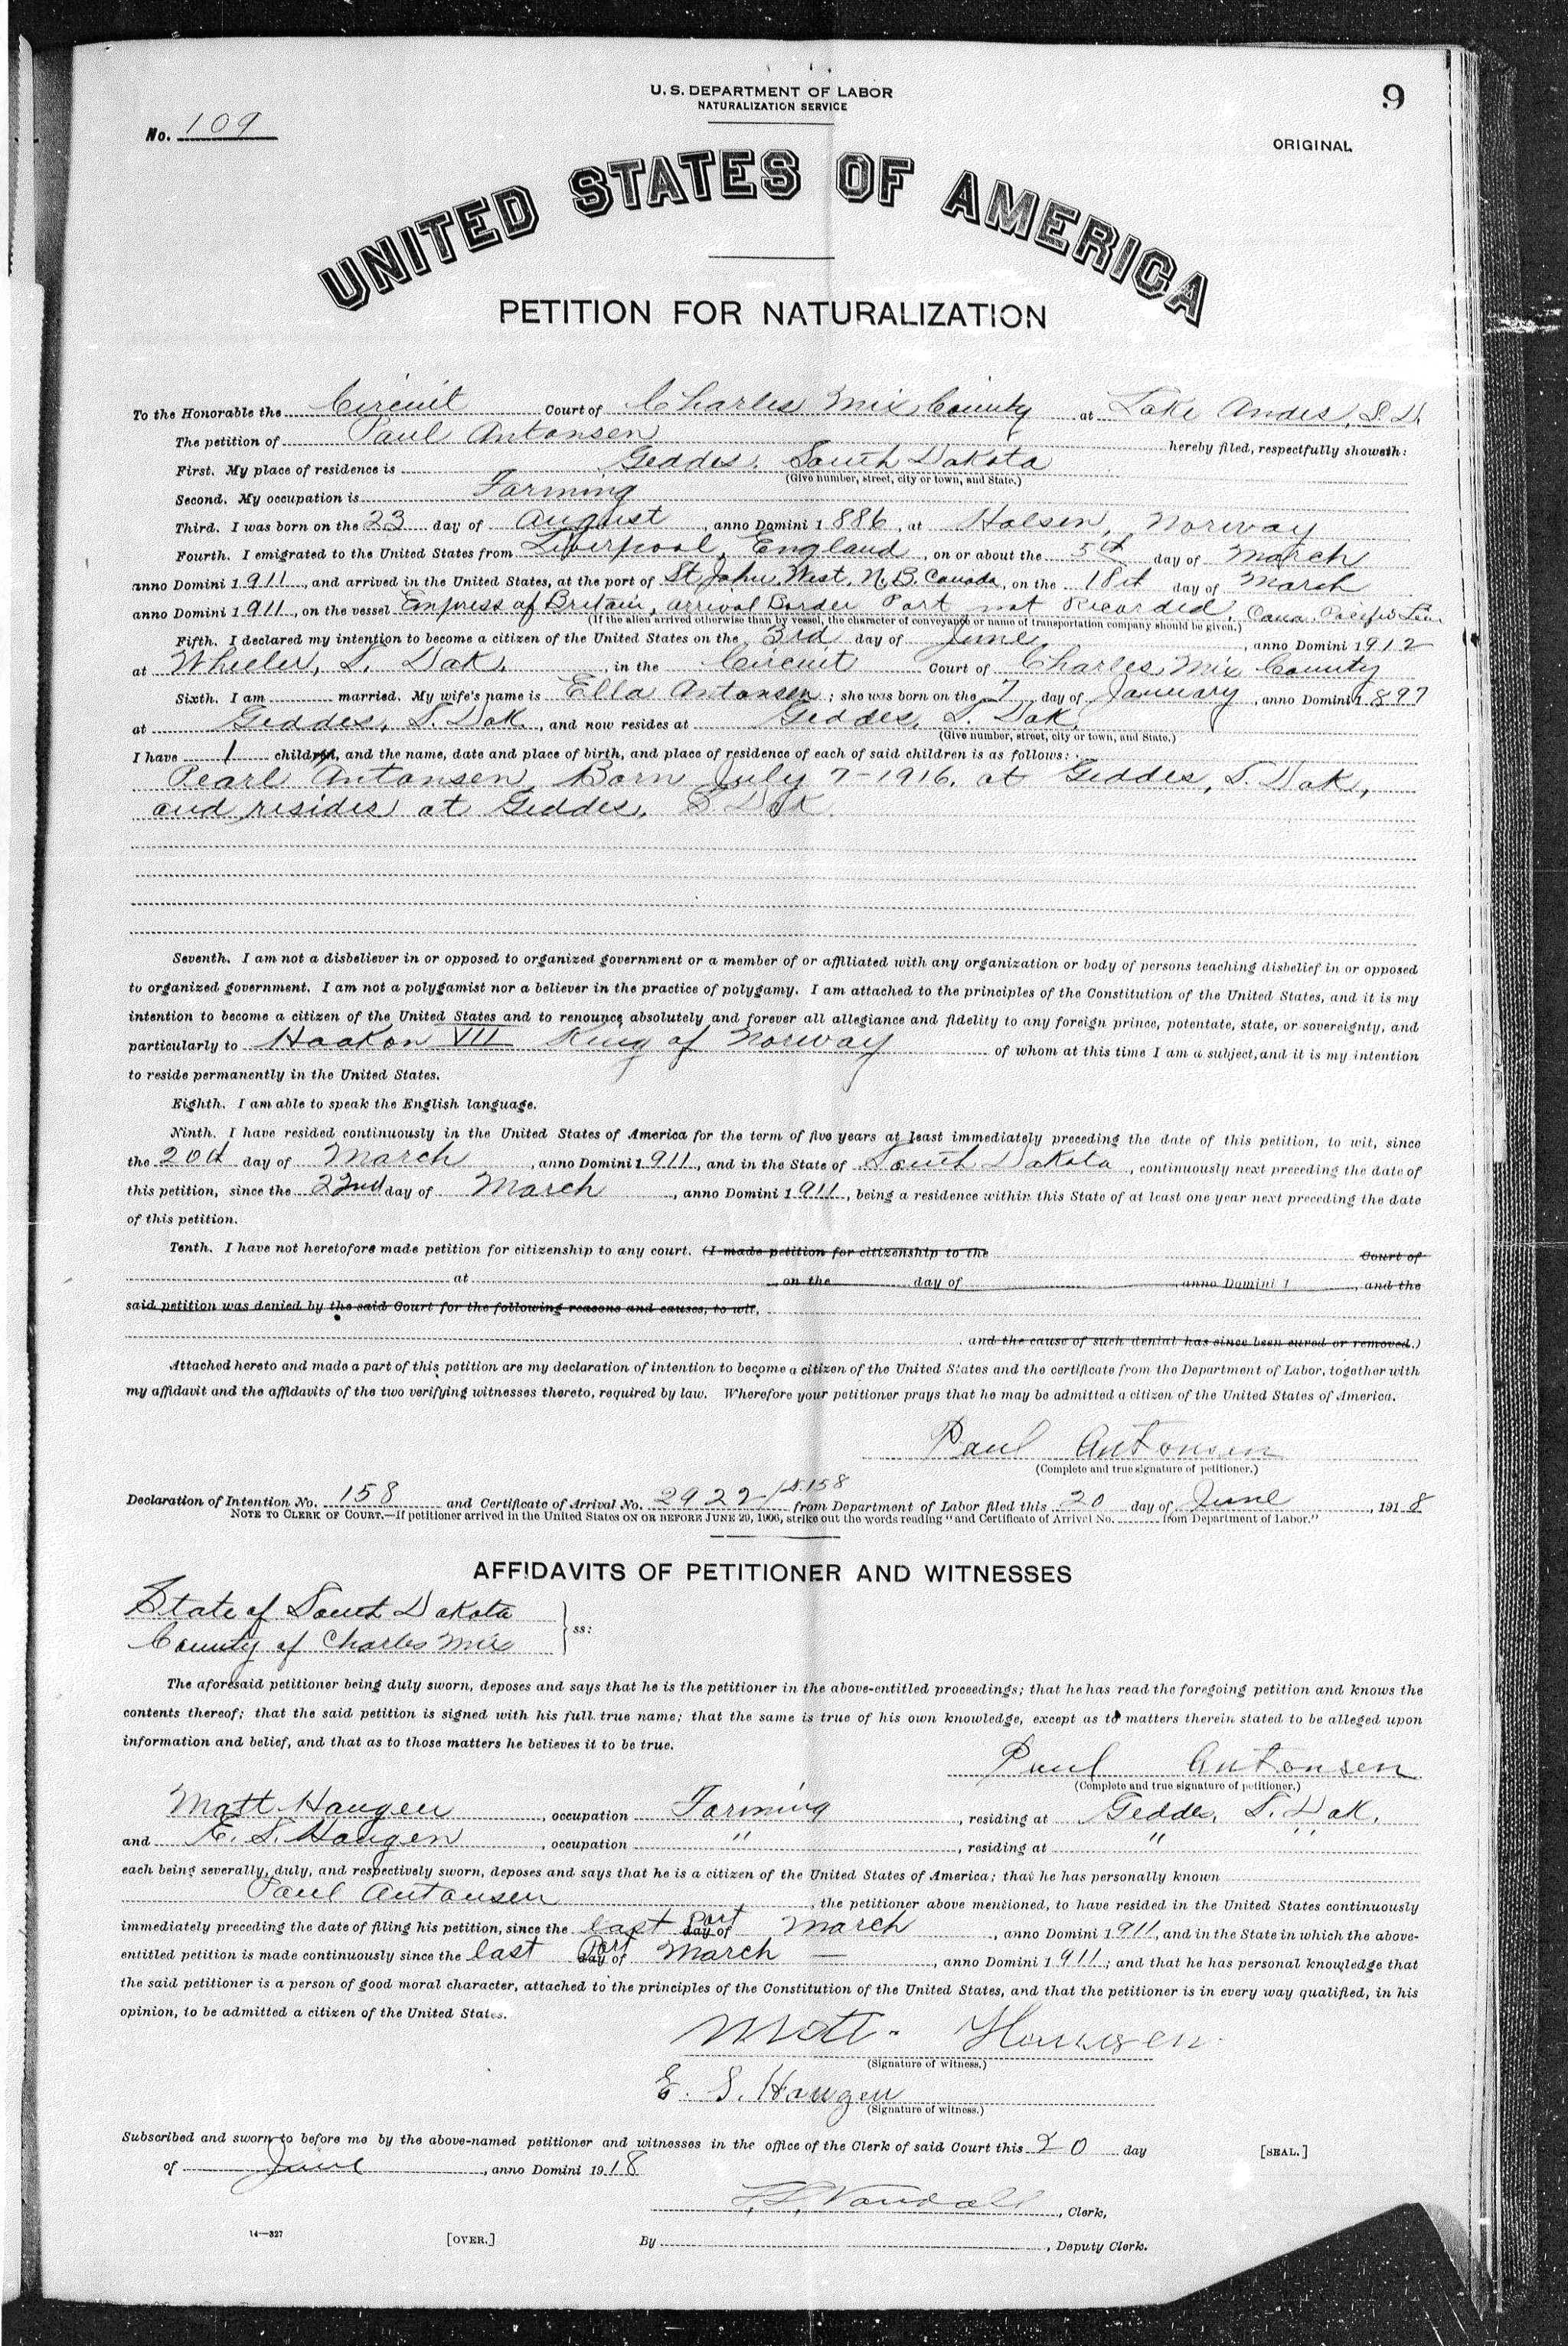 U. S. DEPARTMENT OF LABOR
NATURALIZATION SERVICE
9
No. 109
ORIGINAL
UNITED STATES OF AMERICA
PETITION FOR NATURALIZATION
To the Honorable the Circuit Court of Charles Mix County at Lake Andes, S. D.
The petition of Paul Antonsen hereby filed, respectfully showeth:
First. My place of residence is Geddes, South Dakota
(Give number, street, city or town, and State.)
Second. My occupation is Farming
Third. I was born on the 23 day of August, anno Domini 1 886, at Halsen, Norway
Fourth. I emigrated to the United States from Liverpool, England, on or about the 5th day of March
anno Domini 1 911, and arrived in the United States, at the port of St John, West, N. B. Canada, on the 18th day of March
anno Domini 1 911, on the vessel Empress of Britain, arrival Border Port not Recorded, Cana. Pacific Line
(If the alien arrived otherwise than by vessel, the character of conveyance or name of transportation company should be given.)
Fifth. I declared my intention to become a citizen of the United States on the 3rd day of June, anno Domini 1 912
at Wheeler, S. Dak. in the Circuit Court of Charles Mix County
Sixth. I am married. My wife's name is Ella Antonsen; she was born on the 7 day of January, anno Domini 1 897
at Geddes, S. Dak., and now resides at Geddes, S. Dak.
(Give number, street, city or town, and State.)
I have 1 children, and the name, date and place of birth, and place of residence of each of said children is as follows:
Pearl Antonsen, Born July 7-1916, at Geddes, S. Dak,
and resides at Geddes, S Dak.
Seventh. I am not a disbeliever in or opposed to organized government or a member of or affiliated with any organization or body of persons teaching disbelief in or opposed
to organized government. I am not a polygamist nor a believer in the practice of polygamy. I am attached to the principles of the Constitution of the United States, and it is my
intention to become a citizen of the United States and to renounce absolutely and forever all allegiance and fidelity to any foreign prince, potentate, state, or sovereignty, and
particularly to Haakon VII King of Norway of whom at this time I am a subject, and it is my intention
to reside permanently in the United States.
Eighth. I am able to speak the English language.
Ninth. I have resided continuously in the United States of America for the term of five years at least immediately preceding the date of this petition, to wit, since
the 20th day of March, anno Domini 1 911, and in the State of South Dakota, continuously next preceding the date of
this petition, since the 22nd day of March, anno Domini 1 911, being a residence within this State of at least one year next preceding the date
of this petition.
Tenth. I have not heretofore made petition for citizenship to any court. (I made petition for citizenship to the Court of
at on the day of anno Domini 1 , and the
said petition was denied by the said Court for the following reasons and causes, to wit,
and the cause of such denial has since been cured or removed.)
Attached hereto and made a part of this petition are my declaration of intention to become a citizen of the United States and the certificate from the Department of Labor, together with
my affidavit and the affidavits of the two verifying witnesses thereto, required by law. Wherefore your petitioner prays that he may be admitted a citizen of the United States of America.
Paul Antonsen
(Complete and true signature of petitioner.)
Declaration of Intention No. 158 and Certificate of Arrival No. 2922/ S.158 from Department of Labor filed this 20 day of June, 191 8
NOTE TO CLERK OF COURT.—If petitioner arrived in the United States ON OR BEFORE JUNE 29, 1906, strike out the words reading "and Certificate of Arrival No. from Department of Labor."
AFFIDAVITS OF PETITIONER AND WITNESSES
State of South Dakota
County of Charles Mix
ss:
The aforesaid petitioner being duly sworn, deposes and says that he is the petitioner in the above-entitled proceedings; that he has read the foregoing petition and knows the
contents thereof; that the said petition is signed with his full true name; that the same is true of his own knowledge, except as to matters therein stated to be alleged upon
information and belief, and that as to those matters he believes it to be true.
Paul Antonsen
(Complete and true signature of petitioner.)
Matt Haugen, occupation Farming, residing at Geddes, S. Dak.
and E. S. Haugen, occupation ", residing at " "
each being severally, duly, and respectively sworn, deposes and says that he is a citizen of the United States of America; that he has personally known
Paul Antonsen, the petitioner above mentioned, to have resided in the United States continuously
immediately preceding the date of filing his petition, since the last Part day of March, anno Domini 1 911, and in the State in which the above-
entitled petition is made continuously since the last Part day of March —, anno Domini 1 911; and that he has personal knowledge that
the said petitioner is a person of good moral character, attached to the principles of the Constitution of the United States, and that the petitioner is in every way qualified, in his
opinion, to be admitted a citizen of the United States.
Matt Haugen
(Signature of witness.)
E. S. Haugen
(Signature of witness.)
Subscribed and sworn to before me by the above-named petitioner and witnesses in the office of the Clerk of said Court this 20 day
[SEAL.]
of June, anno Domini 19 18
Vandall, Clerk,
14—327
[OVER.]
By , Deputy Clerk.